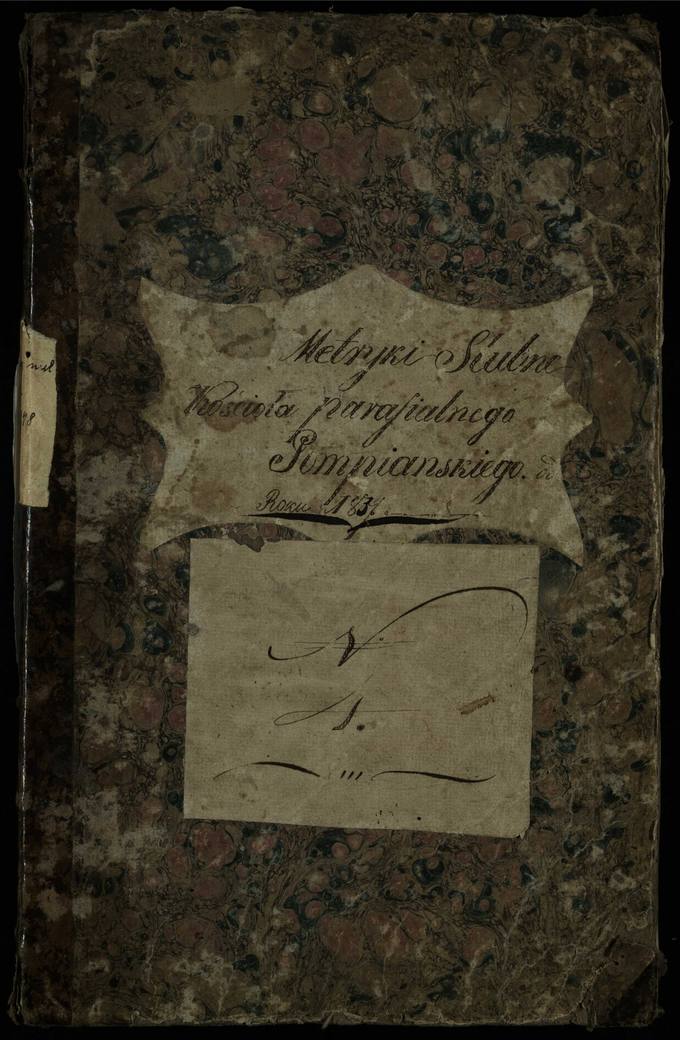 Metryki Ślubne
Kościoła parafialnego
Pompianskiego. od
Roku 1837.
N
1.